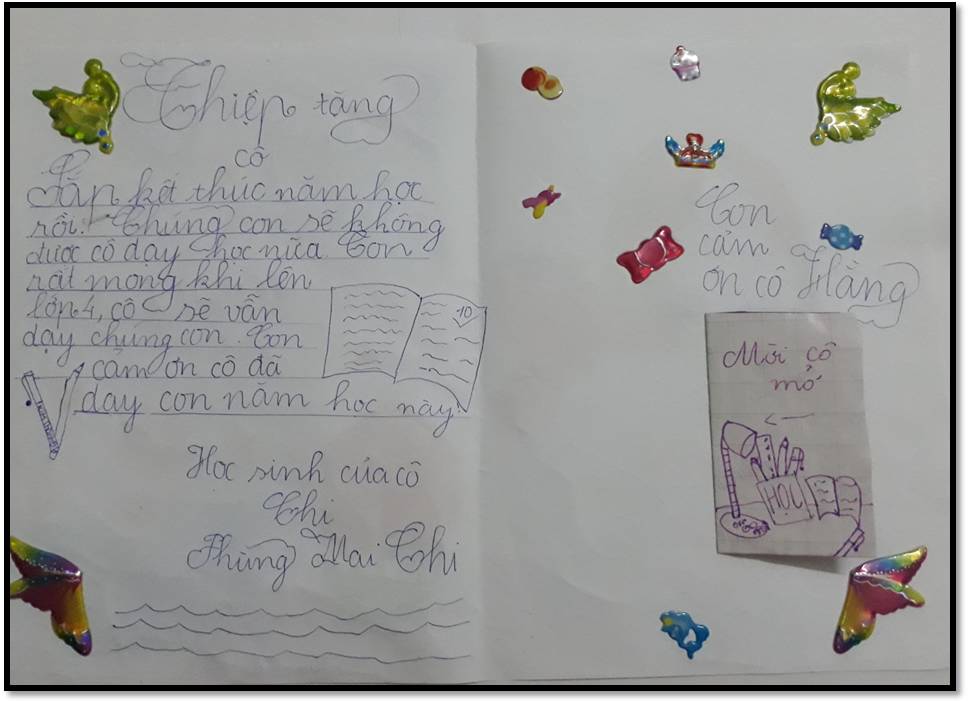 Thiệp tặng
cô
Sắp kết thúc năm học
rồi. Chúng con sẽ không
được cô dạy học nữa. Con
rất mong khi lên
lớp 4, cô sẽ vẫn
dạy chúng con. Con
cảm ơn cô đã
dạy con năm học này!
10
Học sinh của cô
Chi
Phùng Mai Chi
Con
cảm
ơn cô Hằng
Mời cô
mở
HỌC